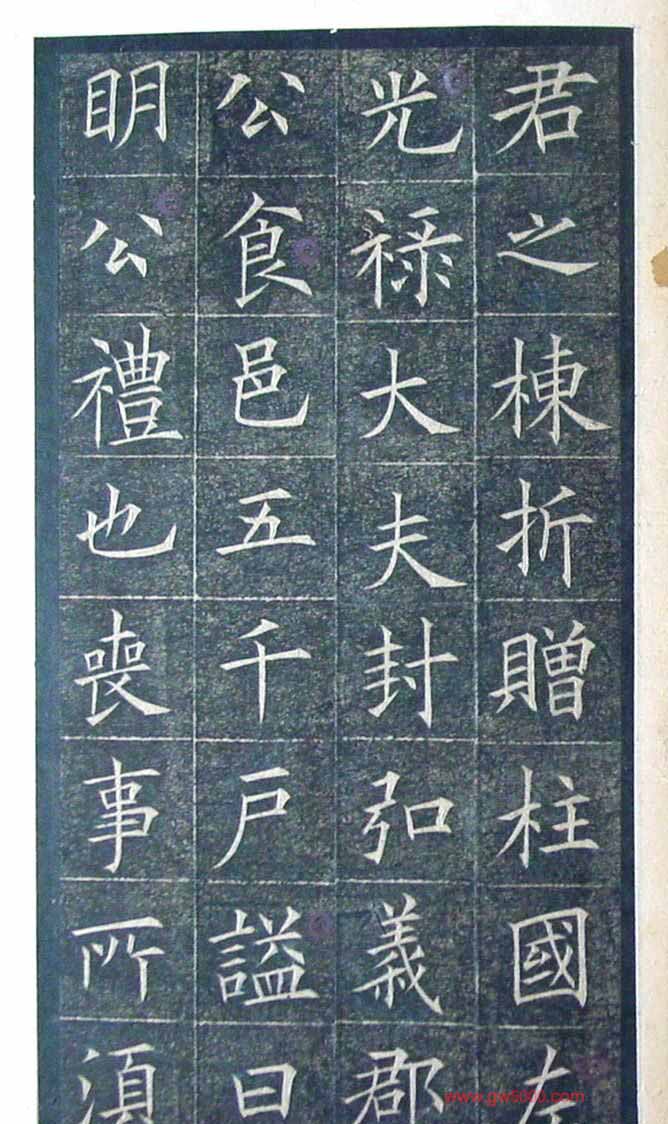 君之棟折贈柱國左
光祿大夫封弘義郡
公食邑五千戶謚曰
明公禮也喪事所須
www.gw5000.com